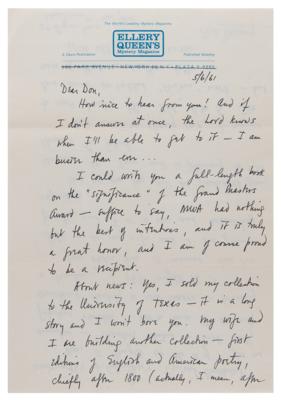 The World's Leading Mystery Magazine
ELLERY
QUEEN'S
Mystery Magazine
A Davis Publication
Published Monthly
5/6/61
Dear Don,
How nice to hear from you! And if
I don't answer at once, the Lord knows
when I'll be able to get to it — I am
busier than ever...
I could write you a full-length book
on the "significance" of the Grand Masters
Award — suffice to say, MWA had nothing
but the best of intentions, and it is truly
a great honor, and I am of course proud
to be a recipient.
About news: Yes, I sold my collection
to the University of Texas — it is a long
story and I won't bore you. My wife and
I are building another collection — first
editions of English and American poetry,
chiefly after 1800 (actually, I mean, after